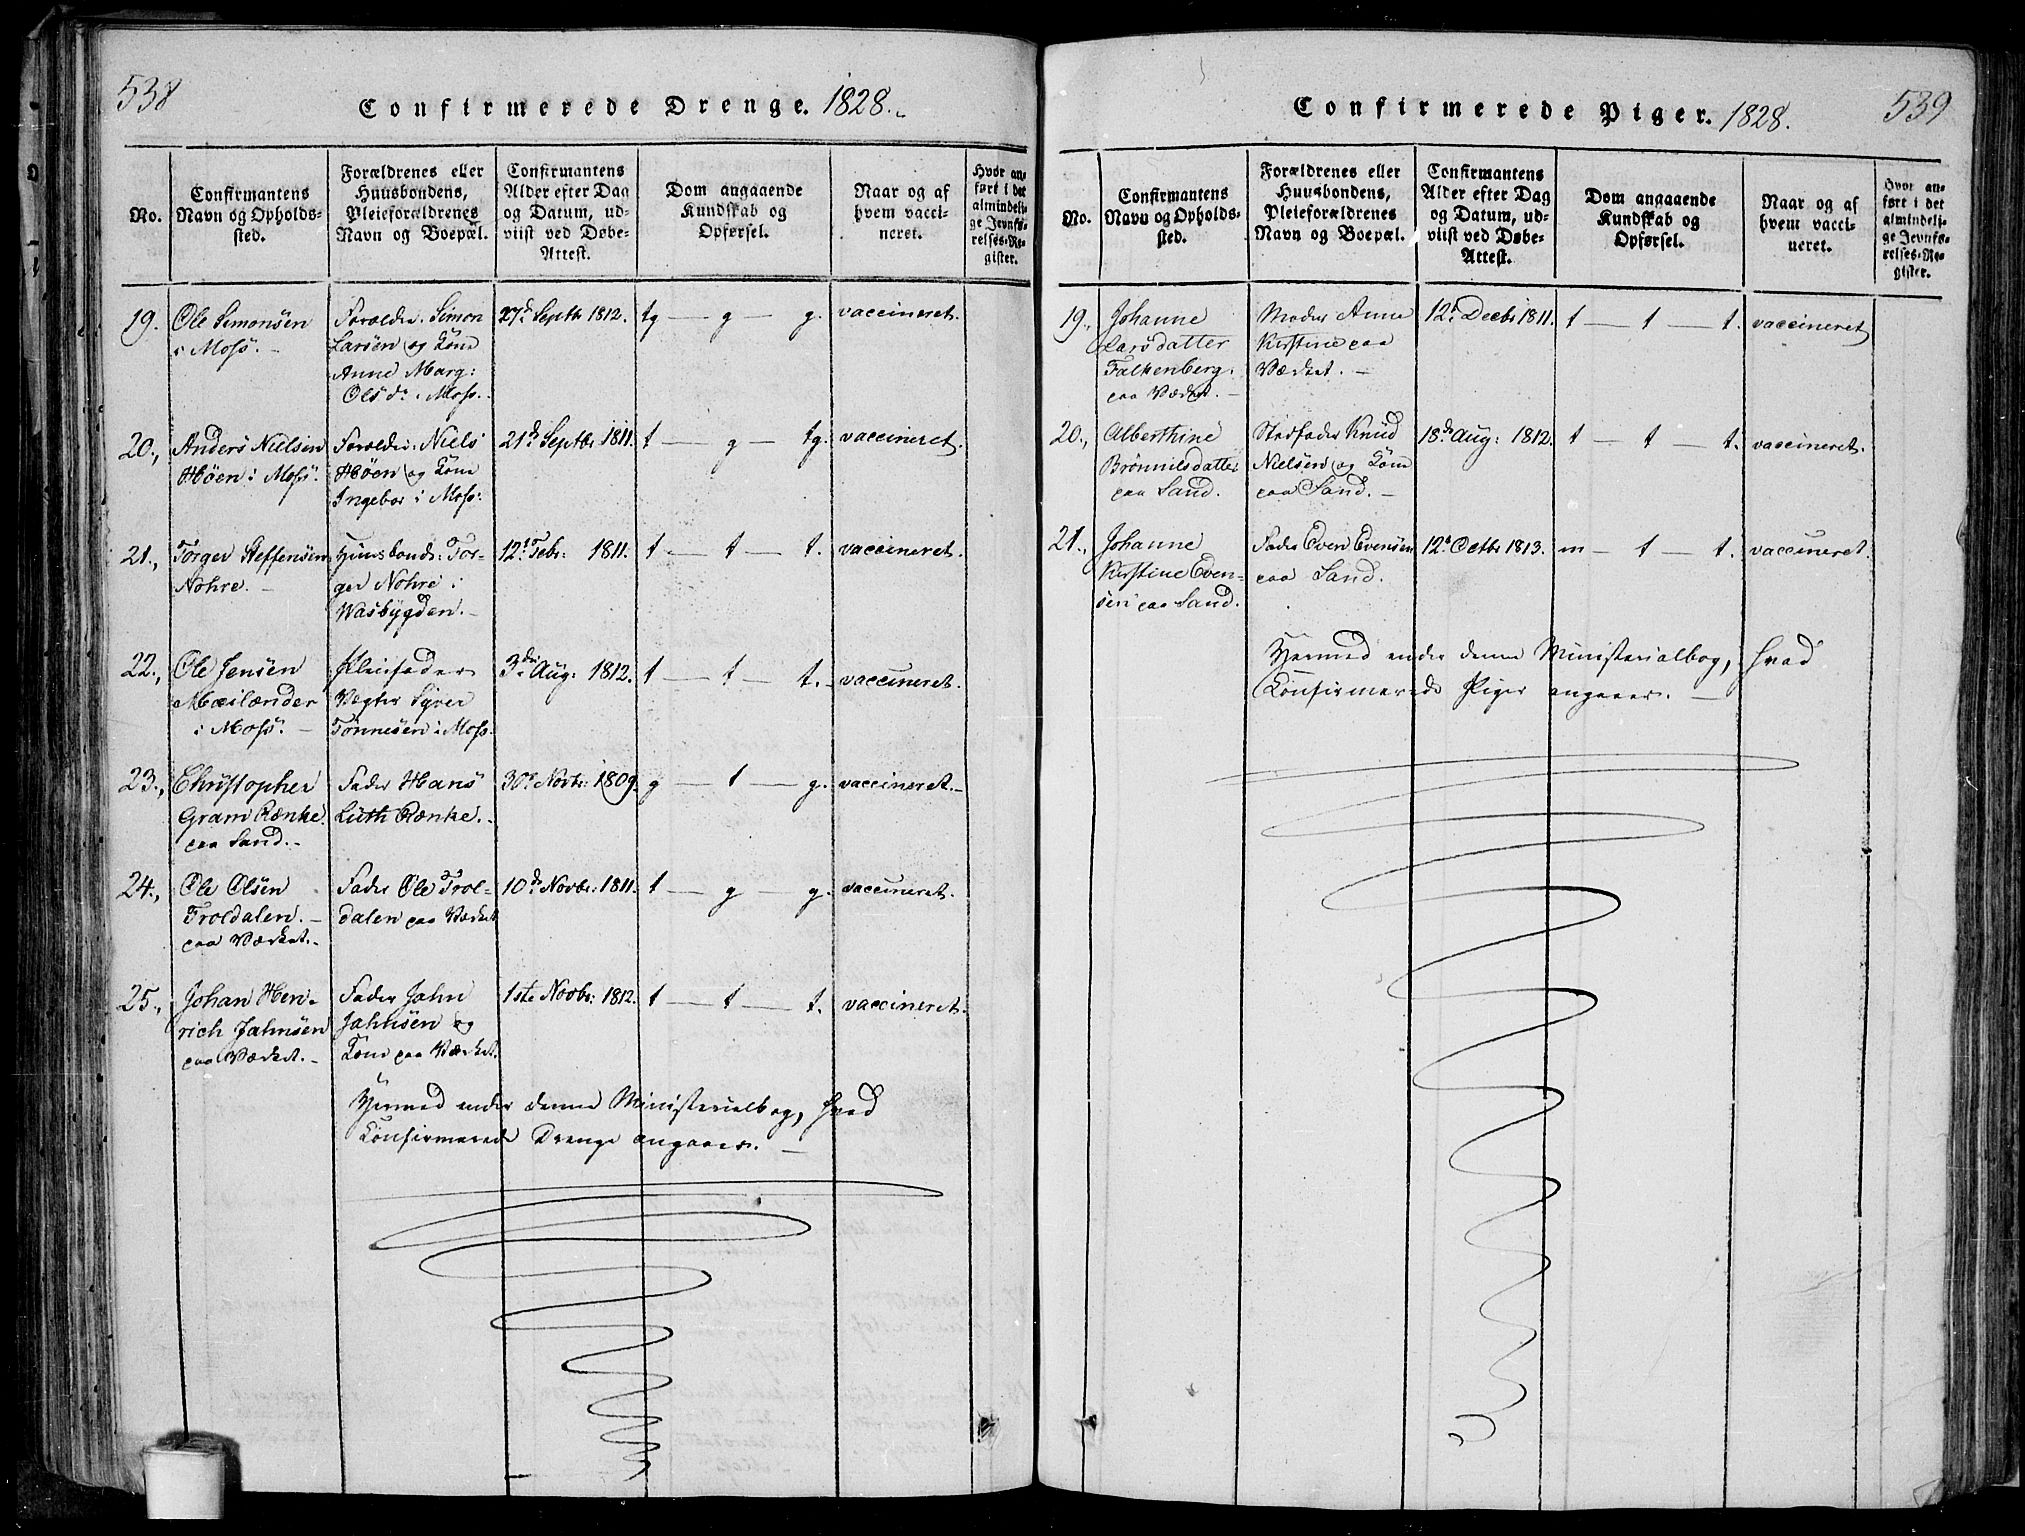 538
Confirmerede Drenge. 1828.
No.
Confirmantens
Navn og Opholds-
sted.
Forældrenes eller
Huusbondens,
Pleieforældrenes
Navn og Boepæl.
Confirmantens
Alder efter Dag
og Datum, ud-
viist ved Døbe-
Attest.
Dom angaaende
Kundskab og
Opførsel.
Naar og af
hvem vacci-
neret.
Hvor an-
ført i det
almindeli-
ge Jevnfø-
relses-Re-
gister.
19.
Ole Simonsen
i Moss. -
Forældre: Simon
Larsen og Kone
Anne Marg:
Olsdr i Moss.
27d Septb 1812.
tg - g - g.
vaccineret.
20.,
Anders Nielsen
Høen i Moss.
Forældre: Niels
Høen og Kone
Ingebor i Moss:
21d Septbr 1811.
t - g - tg.
vaccineret.
21.,
Torger Steffensen
Nohre. -
Huusbonde: Tor-
ger Nohre i
Wasbygden. -
12t Febr: 1811.
t - t - t.
vaccineret.
22.,
Ole Jensen
Mailænder
i Moss. -
Pleiefader
Vegter Syver
Tønnesen i Moss.
3de Aug: 1812.
t - t - t. -
vaccineret.
23.,
Christopher
Gram Rænke
paa Sand. -
Fader Hans
Lüth Rænke. -
30te Novbr: 1809.
g - t - g.
vaccineret. -
24.,
Ole Olsen
Troldalen. -
paa Værket. -
Fader Ole Trol-
dalen paa Værket
10d Novbr: 1811.
t - g - g.
vaccineret.
25.,
Johan Hen-
rich Jahnsen
paa Værket. -
Fader Jahn
Jahnsen og
Kone paa Værket.
1ste Novbr: 1812.
t - t - t.
vaccineret.
Hermed ender denne Ministerialbog, hvad
Confirmerede Drenge angaaer. -
Confirmerede Piger. 1828.
539
No.
Confirmantens
Navn og Opholds-
sted.
Forældrenes eller
Huusbondens,
Pleieforældrenes
Navn og Boepæl.
Confirmantens
Alder efter Dag
og Datum, ud-
viist ved Døbe-
Attest.
Dom angaaende
Kundskab og
Opførsel.
Naar og af
hvem vacci-
neret.
Hvor an-
ført i det
almindeli-
ge Jevnfø-
relses-Re-
gister.
19.,
Johanne
Larsdatter
Falkenberg.
paa Værket. -
Moder Anne
Kirstine paa
Værket. -
12t Decbr 1811.
t - t - t.
vaccineret
20.,
Alberthine
Brønnilsdatter
paa Sand.
Stedfader Knud
Nielsen og Kone
paa Sand. -
18de Aug: 1812.
t - t - t.
vaccineret.
21.,
Johanne
Kirstine Even-
sen paa Sand.
Fader Even Evensen
paa Sand.
12t Octbr 1813.
m - t - t.
vaccineret.
Hermed ender denne Ministerialbog, hvad
Confirmerede Piger angaaer. -